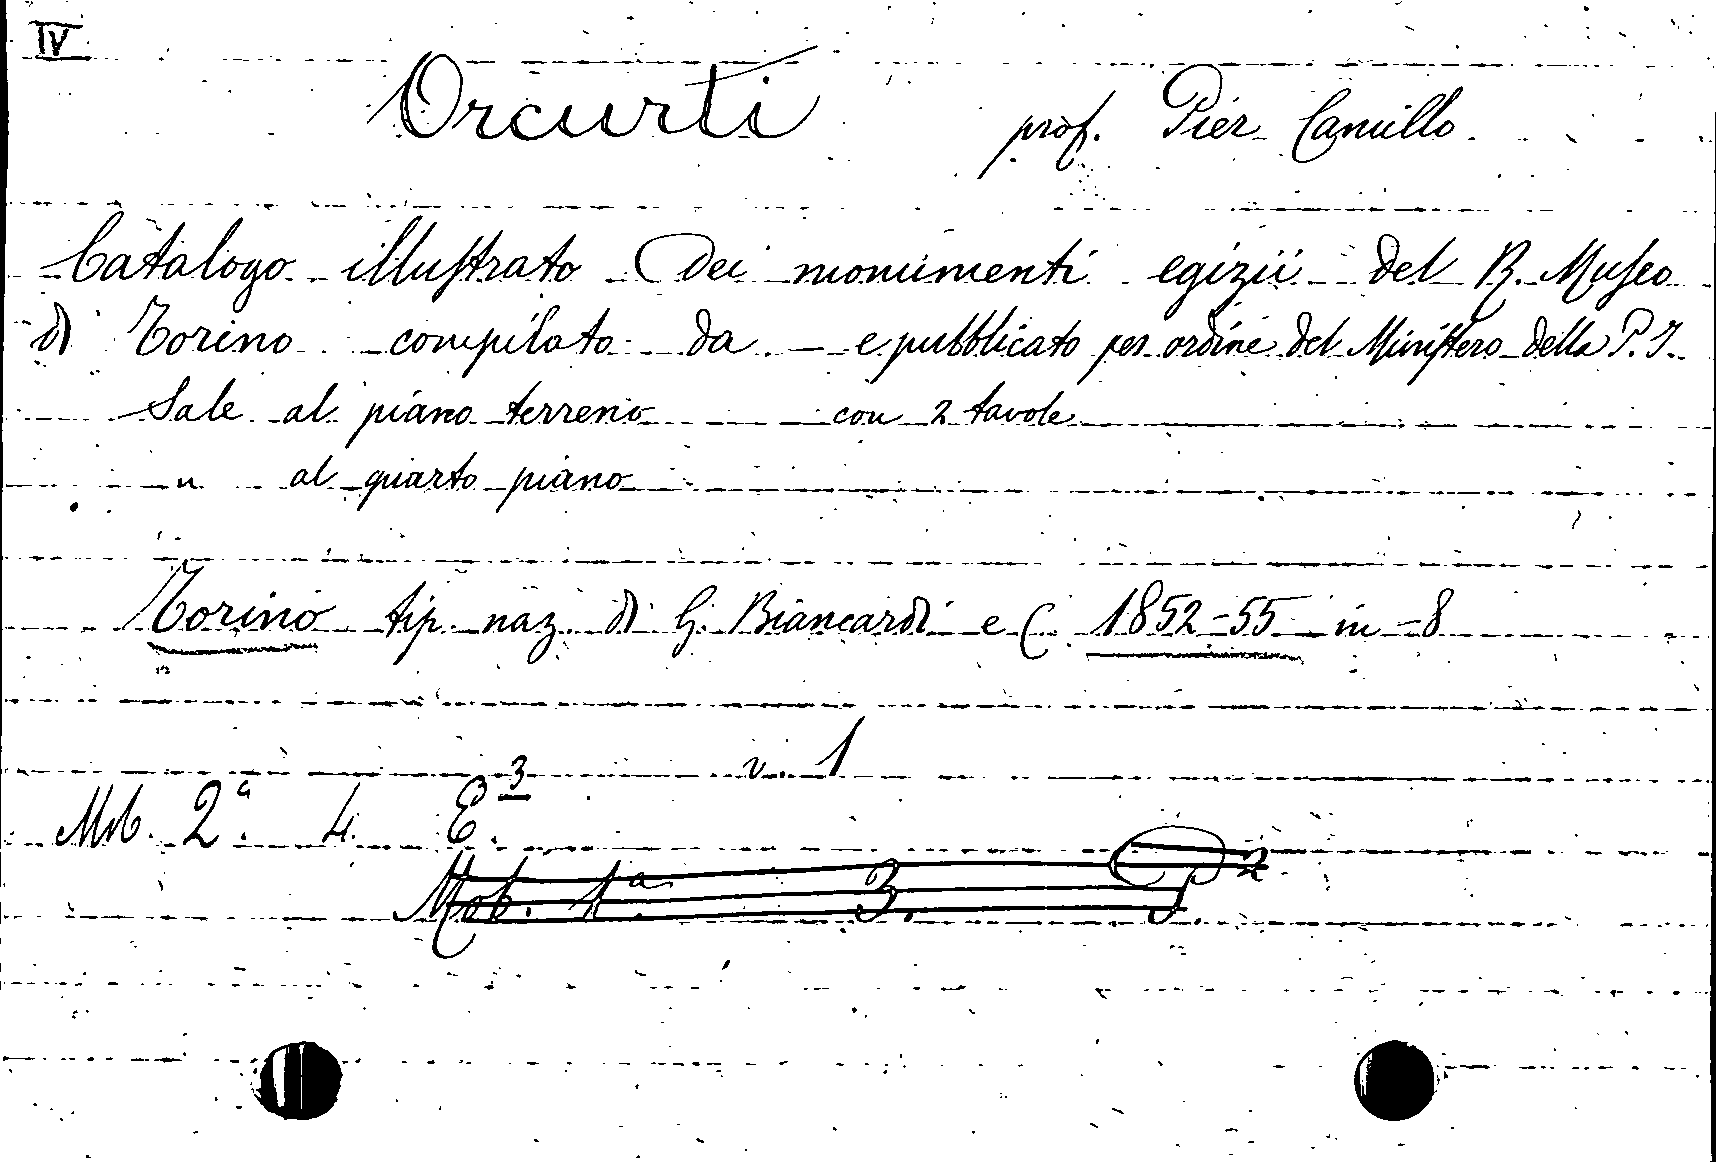 IV
Orcurti prof. Pier Camillo
Catalogo illustrato dei monumenti egizii del R. Museo
di Torino compilato da — e pubblicato per ordine del Ministero della P. I.
Sale al piano terreno con 2 tavole
" al quarto piano
Torino tip. naz. di G. Biancardi e C. 1852-55 in-8
v. 1
Mob. 2.ª 4. E.³
Mob. 1.ª 3. P.²